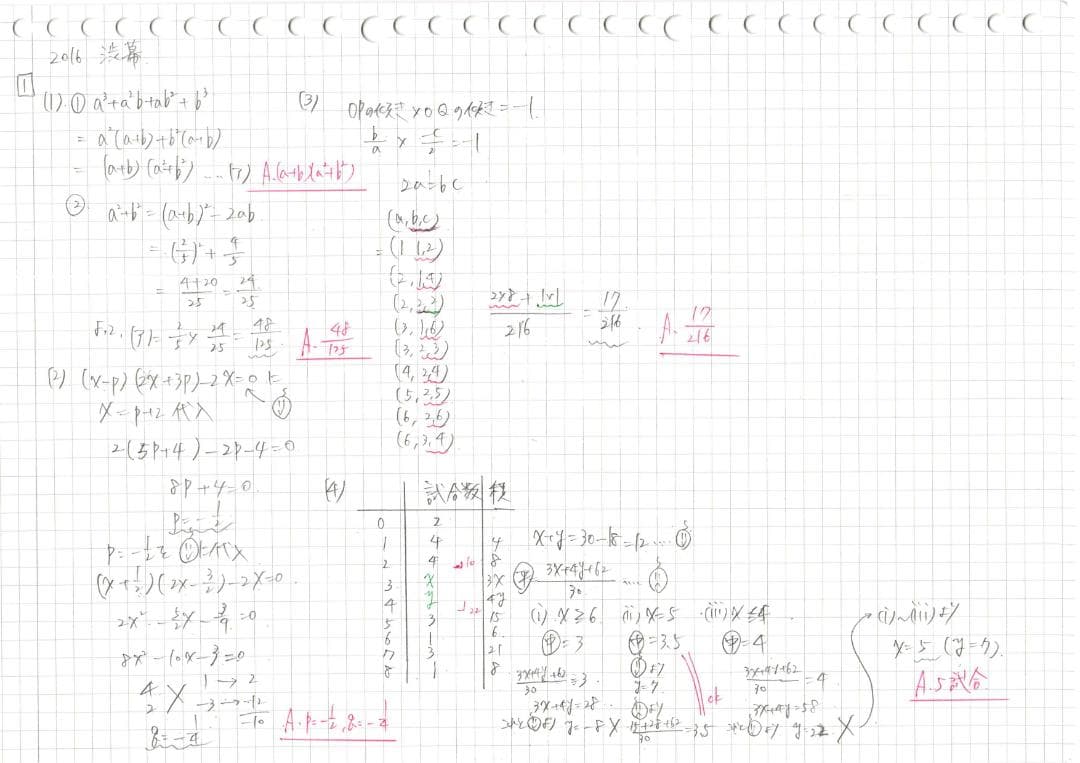 2016 渋幕
1
(1) ① a³+a²b+ab²+b³
= a²(a+b)+b²(a+b)
= (a+b)(a²+b²) … (ア) A.(a+b)(a²+b²)
② a²+b² = (a+b)² - 2ab
= (2/5)² + 4/5
= (4+20)/25 = 24/25
よって, (ア) = 2/5 × 24/25 = 48/125 A. 48/125
(2) (x-p)(2x+3p)-2x=0 に
x=p+2 代入
2(5p+4)-2p-4=0
8p+4=0
p=-1/2
(x+1/2)(2x-3/2)-2x=0
8x²-10x-3=0
4 1 → 2
2 -3 → -12
-10
q=-1/4
A. p=-1/2, q=-1/4
(3) OPの傾き×OQの傾き=-1
b/a × c/2 = -1
(a,b,c)
=(1 1,2)
(2,1,4)
(2,2,2)
(3,1,6)
(3,2,3)
(4,2,4)
(5,2,5)
(6,2,6)
(6,3,4)
(2×8+1×1)/216 = 17/216 A. 17/216
(4)
試合数 積
0 2
1 4 4
2 4 8
3 x 3x
4 y 4y
5 3 15
6 1 6
7 3 21
8 1 8
→10
→22
x+y=30-18=12 ……
㊥ (3x+4y+62)/30 ……
(i) x≧6 (ii) x=5 (iii) x≦4
㊥=3 ㊥=3.5 ㊥=4
(3x+4y+62)/30=3
3x+4y=28
y=-8 ×
y=7
(15+28+62)/30=3.5
ok
(3x+4y+62)/30=4
3x+4y=58
y=22 ×
(i)~(iii)より
x=5 (y=7)
A. 5試合